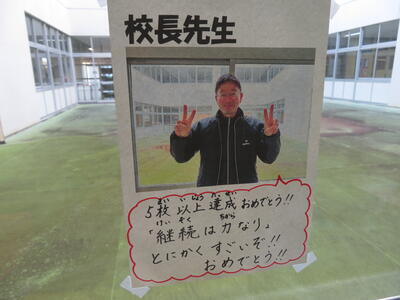 校長先生
5枚以上達成おめでとう!!
「継続は力なり」
とにかくすごいぞ!!
おめでとう!!